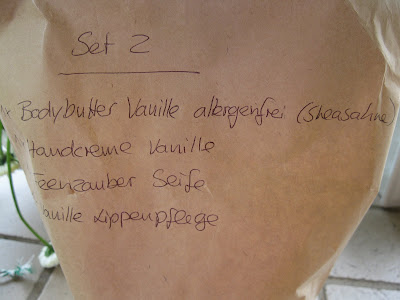 Set 2
1x Bodybutter Vanille allergenfrei (Sheasahne)
Handcreme Vanille
Feenzauber Seife
Vanille Lippenpflege